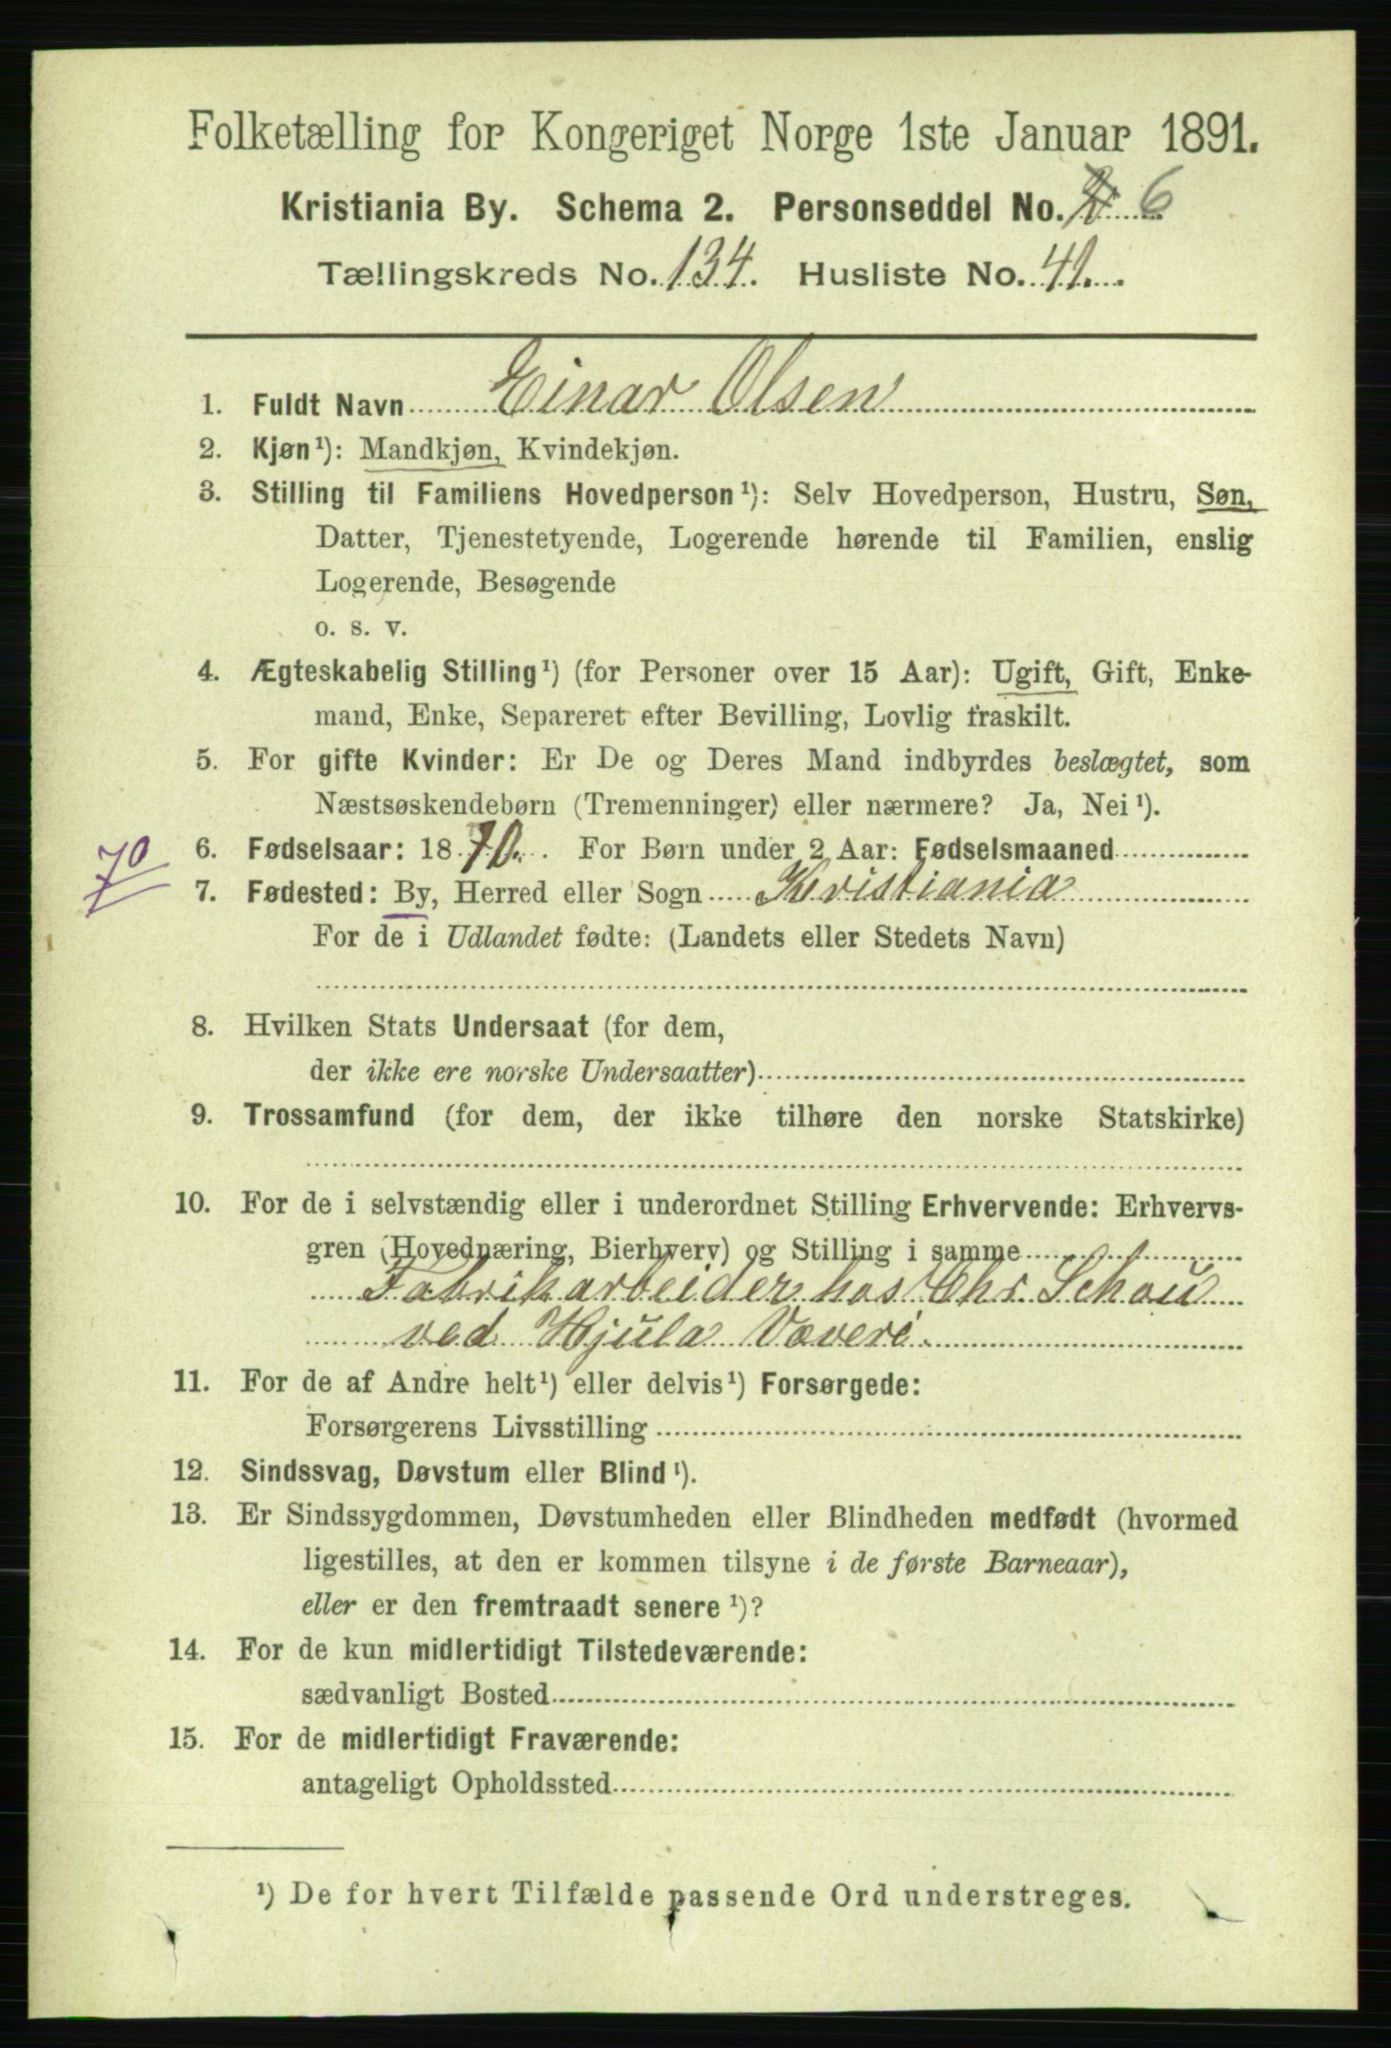 Folketælling for Kongeriget Norge 1ste Januar 1891.
Kristiania By. Schema 2. Personseddel No. 6
Tællingskreds No. 134. Husliste No. 41.
1. Fuldt Navn Einar Olsen
2. Kjøn¹): Mandkjøn, Kvindekjøn.
3. Stilling til Familiens Hovedperson¹): Selv Hovedperson, Hustru, Søn,
Datter, Tjenestetyende, Logerende hørende til Familien, enslig
Logerende, Besøgende
o. s. v.
4. Ægteskabelig Stilling¹) (for Personer over 15 Aar): Ugift, Gift, Enke-
mand, Enke, Separeret efter Bevilling, Lovlig fraskilt.
5. For gifte Kvinder: Er De og Deres Mand indbyrdes beslægtet, som
Næstsøskendebørn (Tremenninger) eller nærmere? Ja, Nei¹).
70
6. Fødselsaar: 1870. For Børn under 2 Aar: Fødselsmaaned
7. Fødested: By, Herred eller Sogn Kristiania
For de i Udlandet fødte: (Landets eller Stedets Navn)
8. Hvilken Stats Undersaat (for dem,
der ikke ere norske Undersaatter)
9. Trossamfund (for dem, der ikke tilhøre den norske Statskirke)
10. For de i selvstændig eller i underordnet Stilling Erhvervende: Erhvervs-
gren (Hovednæring, Bierhverv) og Stilling i samme
Fabrikarbeider hos Chr. Schou
ved Hjula Væveri.
11. For de af Andre helt¹) eller delvis¹) Forsørgede:
Forsørgerens Livsstilling
12. Sindssvag, Døvstum eller Blind¹).
13. Er Sindssygdommen, Døvstumheden eller Blindheden medfødt (hvormed
ligestilles, at den er kommen tilsyne i de første Barneaar),
eller er den fremtraadt senere¹)?
14. For de kun midlertidigt Tilstedeværende:
sædvanligt Bosted
15. For de midlertidigt Fraværende:
antageligt Opholdssted
¹) De for hvert Tilfælde passende Ord understreges.